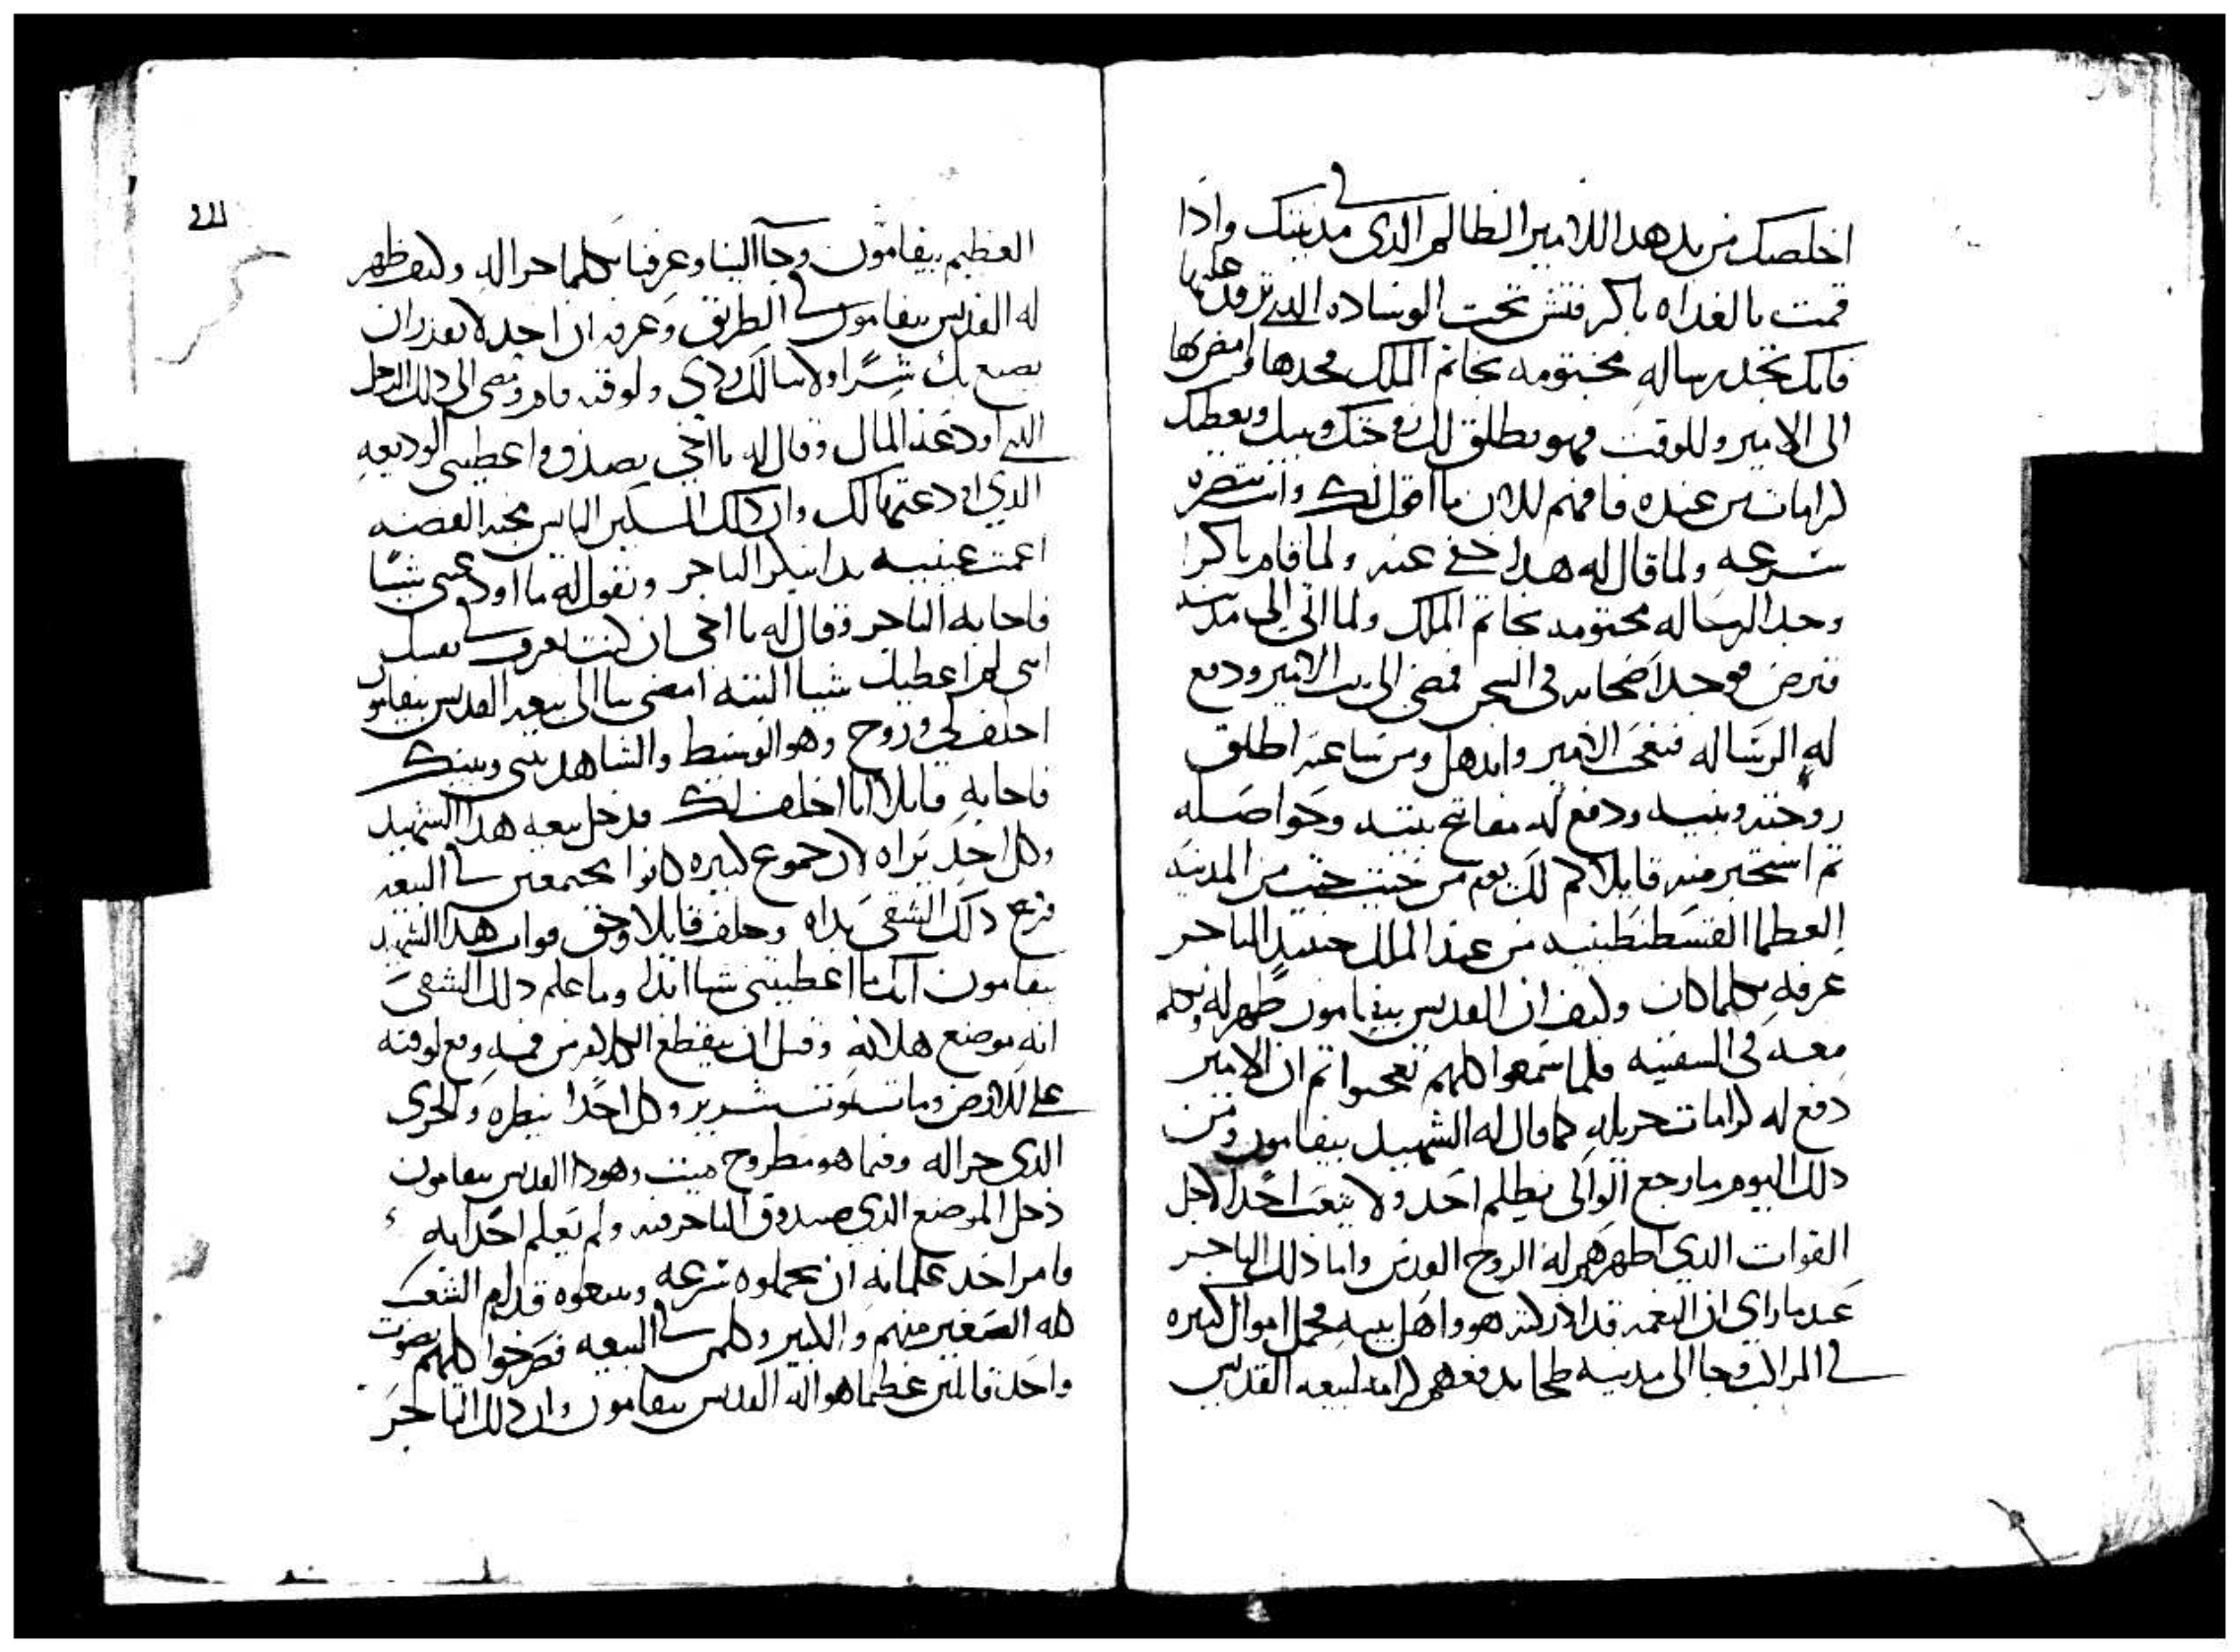 اخلصك من يد هدا الامير الظالم الدي في مدينتك وادا
قمت بالغداه باكر فتش تحت الوساده الدي ترقد عليها
فانك تجد رساله مختومه بخاتم الملك فخدها وامضي بها
الى الامير وللوقت فهو يطلق لك زوجتك وبنيك ويعطيك
كرامات من عنده فافهم الان ما اقول لك وانت تنضره
سرعه ولما قال له هدا خفي عنه ولما قام باكرا
وجد الرساله مختومه بخاتم الملك ولما اتى الى مدينه
فوجد اصحابه في السجن فمضى الى بيت الامير ودفع
له الرساله فتعجب الامير واندهل ومن ساعته اطلق
زوجته وبنيه ودفع له مفاتيح بيته وحواصله
تم استخبر منه قايلا كم لك يوم من حيت جيت من المدينه
العظما القسطنطينيه من عند الملك حينيدٍ التاجر
عرفه بكلما كان وكيف ان القديس بيفامون ظهر له وتكلم
معه في السفينه فلما سمعوا كلهم تعجبوا تم ان الامير
دفع له كرامات جزيله كما قال له الشهيد بيفامون ومن
دلك اليوم ما رجع الوالي يظلم احد ولا يتعب احدا لاجل
القوات الدي اظهرهم له الروح القدس واما دلك التاجر
عندما راى ان النعمه قد ادركته هو واهل بيته فحمل اموال كتيره
في المراكب وجا الى مدينه طحا يدفعهم كرامه لبيعه القديس
العظيم بيفامون وجا الينا وعرفنا بكلما جرا له وكيف ظهر
له القديس بيفامون في الطريق وعرفه ان احد لا يقدر ان
يصنع بك شرًا ولا ينالك ردي ولوقته قام ومضى الى دلك الرجل
الدي اودع عنده المال وقال له يا اخي تصدق واعطيني الوديعه
الدي اودعتها لك وان دلك المسكين الباس محبه الفضه
اعمت عينيه بدا ينكر التاجر وتقول له ما اودعتني شيًا
فاجابه التاجر وقال له يا اخي ان كنت تعرف في نفسك
انني لم اعطيك شيا البته امضي بنا الى بيعه القديس بيفامون
احلف لي وروح وهو الوسيط والشاهد بيني وبينك
فاجابه قايلا انا احلف لك فدخل بيعه هدا الشهيد
وكل احد يراه لان جموع كتيره كانوا مجتمعين في البيعه
فرفع دلك الشقي يداه وحلف قايلا وحق قوات هدا الشهيد
بيفامون انك ما اعطيتني شيا ابدا وما علم دلك الشقي
انه موضع هلاكه وقبل ان ينقطع الكلام من فمه وقع لوقته
على الارض ومات موت شرير وكل احدا ينظره والخزي
الدي جرا له وفيما هو مطروح ميت وهودا القديس بيفامون
دخل الموضع الدي صندوق التاجر فيه ولم يعلم احدا به
وامر احد غلمانه ان يحملوه سرعه ويضعوه قدام الشعب
كله الصغير منهم والكبير وكلمن في البيعه فصرخوا كلهم بصوت
واحد قايلين عظيما هو اله القديس بيفامون وان دلك التاجر